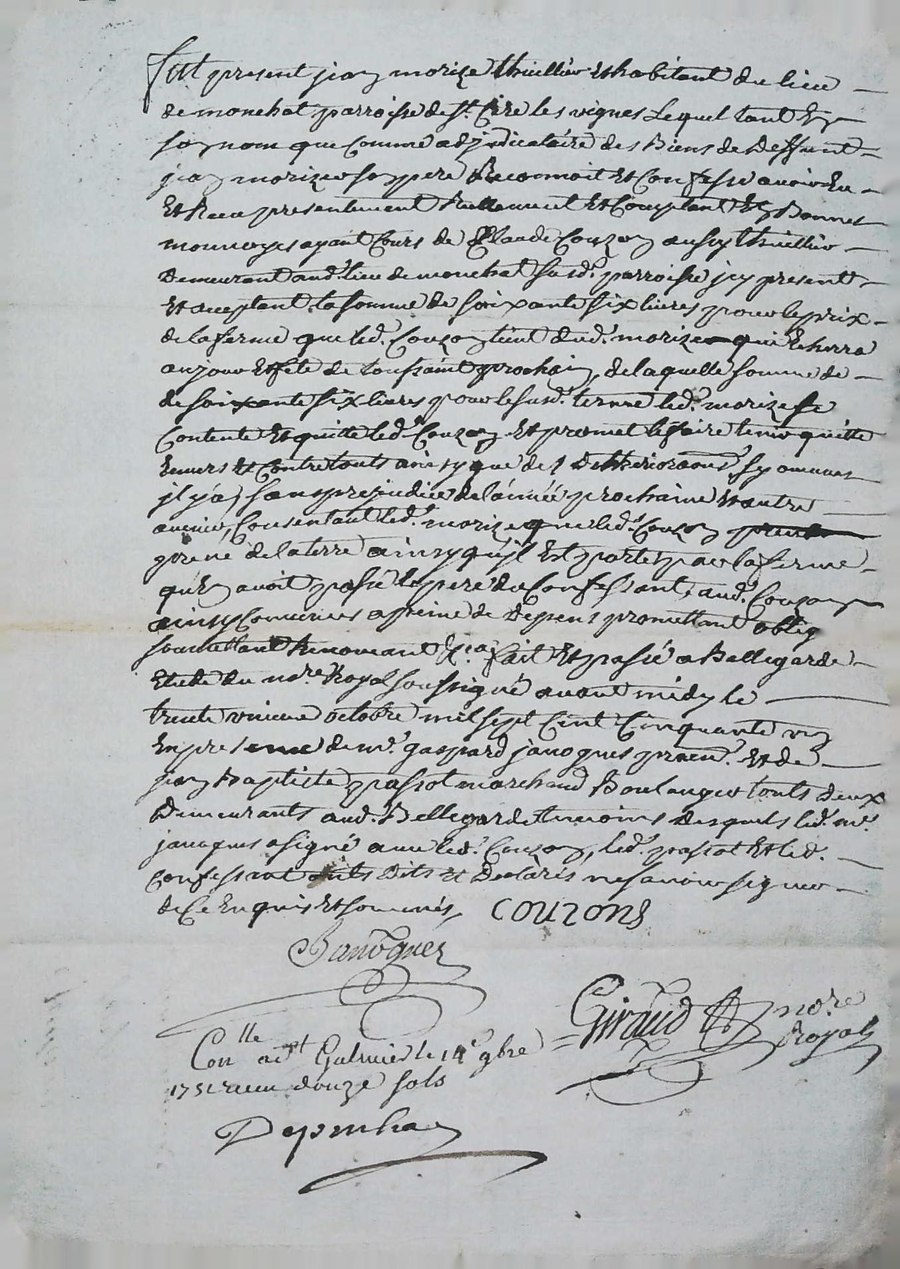 Fut present jean morize thuillier et habitant du lieu
de monchat parroisse de St. Cire les vignes Lequel tant En
son nom que Comme adjudicataire des Biens de Deffunt
jean morize son pere Reconnoit et Confesse avoir Eu
Et Receu presentement Reellement Et Comptant En Bonnes
monnoyes ayant Cours de Claude Couzon aussy thuillier
Demeurant aud. lieu de monchat susd. parroisse jcy present
Et aceptant la somme de soixante six livres pour le prix
de la ferme que led. Couzon tient dud. morize qui Echerra
au jour Et fête de toussaint prochain, de laquelle somme de
de soixante six livres pour le susd. terme led. morize se
Contente Et quitte led. Couzon Et promet le faire tenir quitte
Envers Et Contre touts ainsy que des sy aucunes
jl y a, sans prejudice de l'année prochaine Et autre
avenir, Consentant led. morize que led. Couzon
prene de la terre ainsy qu'jl Est porté par la ferme
qu'En avoit passé le pere du Confessant, aud. Couzon
ainsy Convenu a peine de Depens promettant oblig
soumettant Renonçant fait Et passé a Bellegarde
Etude du nore Royal soussigné avant midy le
trente unieme octobre mil sept Cent Cinquante un
En presence de mr. gaspard janoques Et de
jean Baptiste passot marchand Boulanger touts deux
Demeurants aud. Bellegarde temoins desquels led. mr.
janoques a signé avec led. Couzon, led. passot Et led.
confessant onts dits et Declarés ne savoir signer
de Ce Enquis Et sommés,
COUZONS
Janoques
Giraud nore
Royal
Conlle a St Galmier le 14e 9bre
1751 reçu douze sols